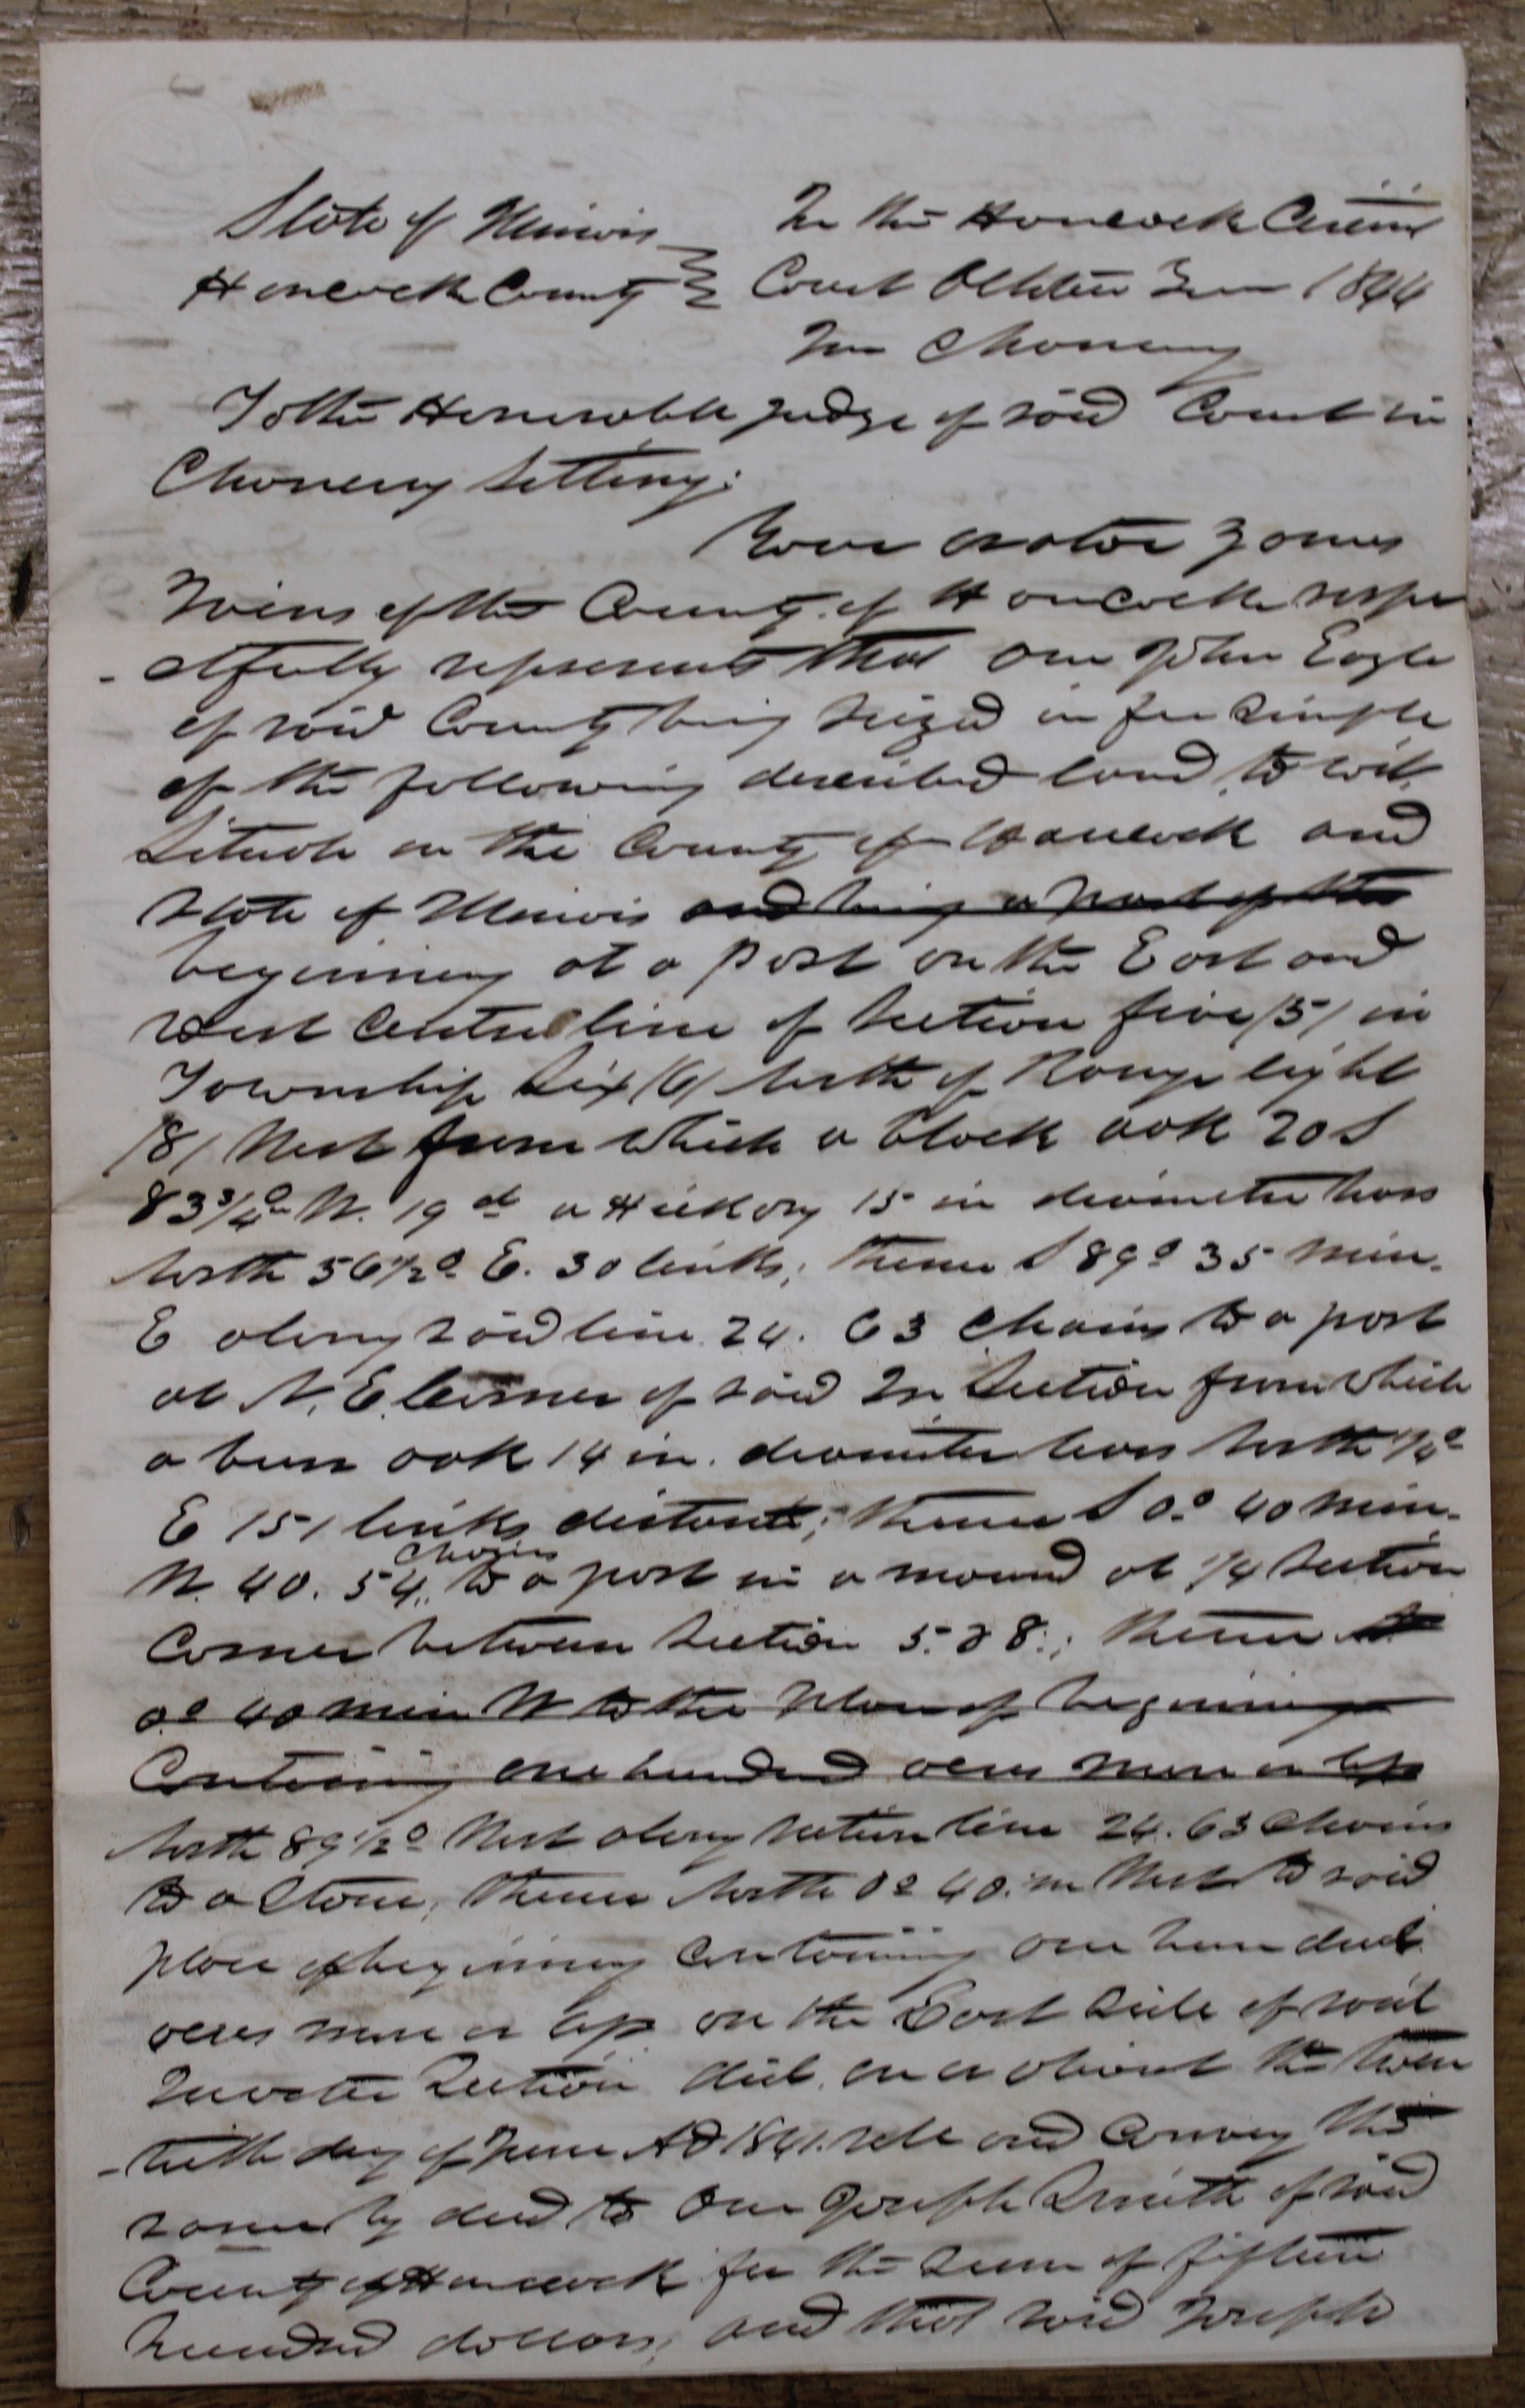 State of Illinois } In the Hancock Circuit
Hancock County } Court October Term 1844
In Chancery
To the Honorable Judge of said Court in
Chancery Sitting:
Your orator James
of the County of Hancock respe
-ctfully represents that one John Eagle
of said County being seized in fee Simple
of the following described land, to wit,
Situate in the County of Hancock and
State of Illinois and being a part of the
beginning at a post on the East and
West Centre line of Section five (5) in
Township Six (6) North of Range eight
(8) West from which a black oak 20 S
83 3/4° W. 19 d a Hickory 15 in diameter bears
North 56 1/2° E. 30 links; thence S 89° 35 min.
E along said line 24. 63 chains to a post
at N. E. Corner of said Qr Section from which
a burr oak 14 in. diameter bears North 1/4°
E 151 links distant; thence S 0.° 40 min.
W. 40. 54 chains to a post in a mound at 1/4 Section
Corner between Section 5. & 8.; thence N
0.° 40 min W to the place of beginning
Containing one hundred acres more or less
North 89 1/2° West along section line 24. 63 Chains
to a Stone, thence North 0° 40. m West to said
place of beginning Containing one hundred
acres more or less on the East Side of said
Quarter Section did, on or about the twen
-tieth day of June AD 1841. sell and Convey the
same by deed to One Joseph Smith of said
County of Hancock for the Sum of fifteen
hundred dollars, and that said Joseph